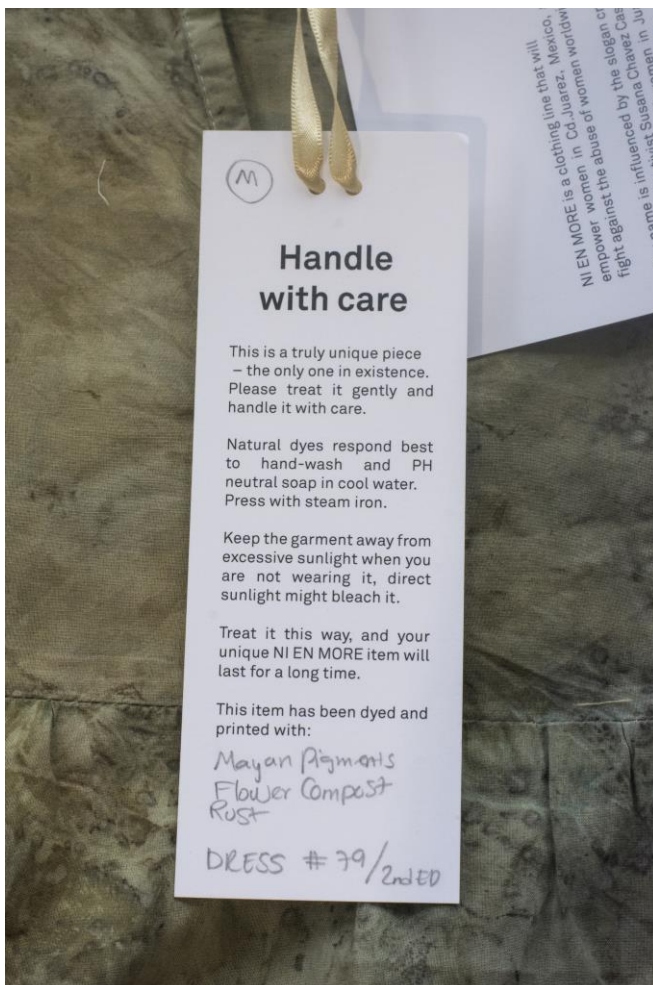 M
Handle
with care
This is a truly unique piece
– the only one in existence.
Please treat it gently and
handle it with care.
Natural dyes respond best
to hand-wash and PH
neutral soap in cool water.
Press with steam iron.
Keep the garment away from
excessive sunlight when you
are not wearing it, direct
sunlight might bleach it.
Treat it this way, and your
unique NI EN MORE item will
last for a long time.
This item has been dyed and
printed with:
Mayan Pigments
Flower Compost
Rust
DRESS # 79/2nd ED
NI EN MORE is a clothing line that will
empower women in Cd.Juarez, Mexico,
fight against the abuse of women
name is influenced by the slogan
Susana Chavez